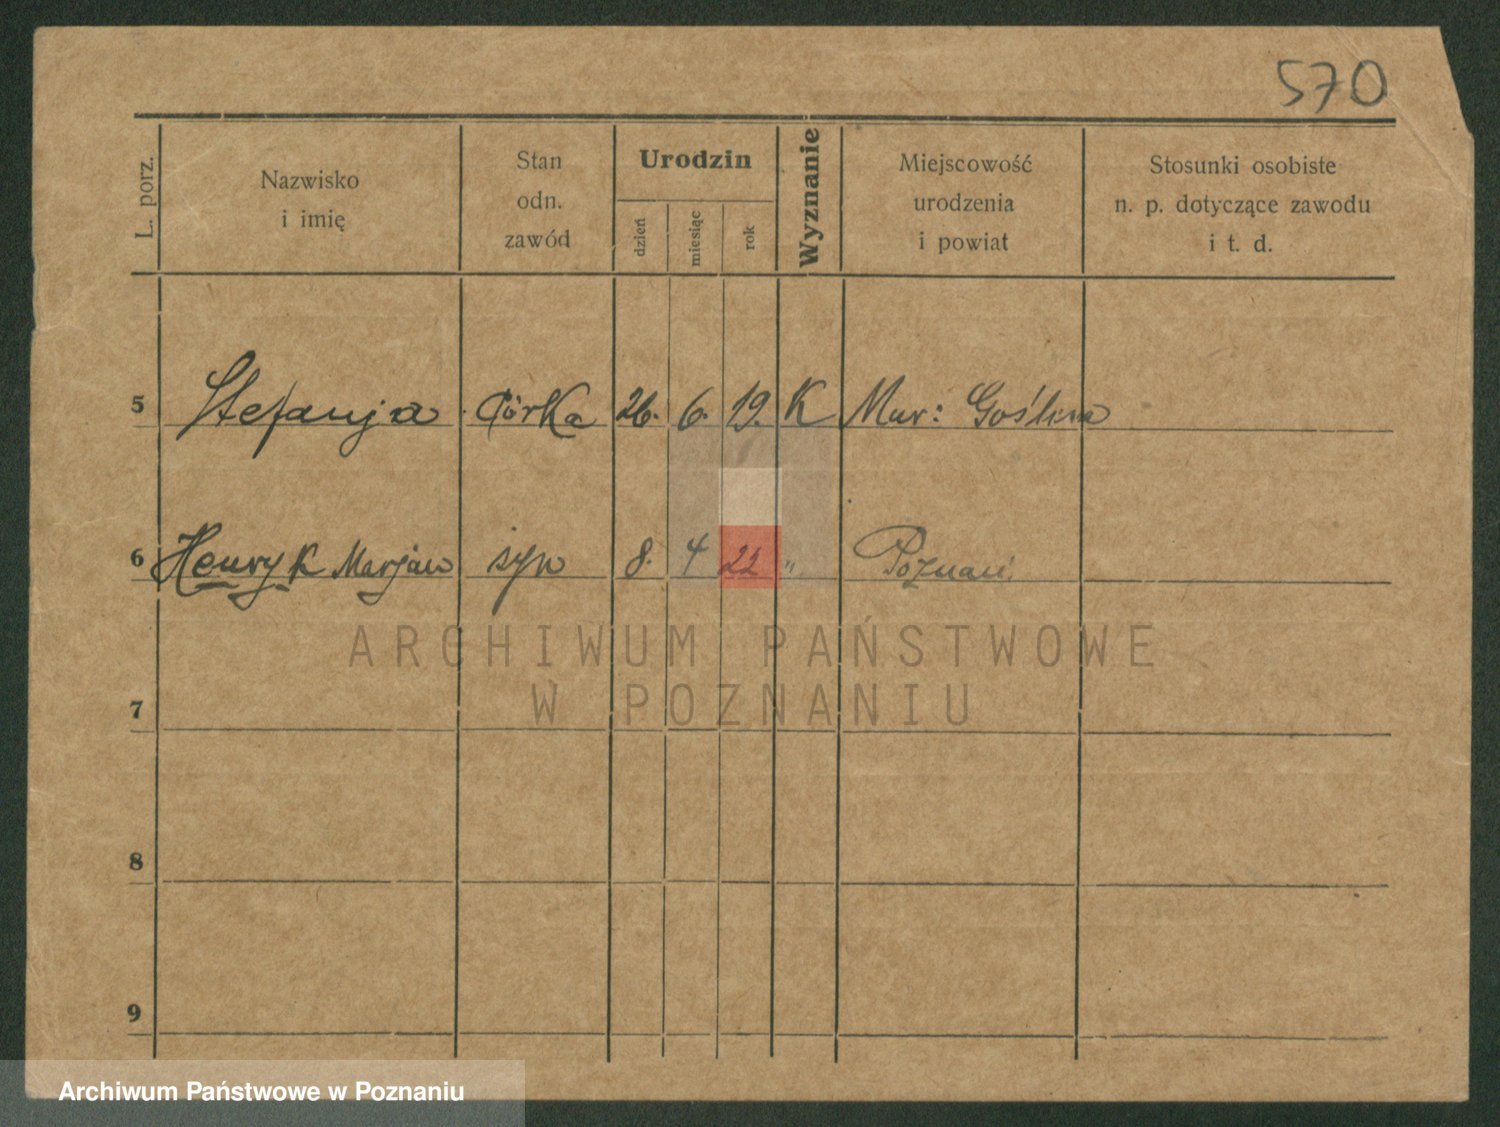 570
L. porz.
Nazwisko
i imię
Stan
odn.
zawód
Urodzin
dzień
miesiąc
rok
Wyznanie
Miejscowość
urodzenia
i powiat
Stosunki osobiste
n. p. dotyczące zawodu
i t. d.
5 Stefanja córka 26. 6. 19. K Mur: Goślina
6 Henryk Marjan syn 8. 4 22 " Poznań.
ARCHIWUM PAŃSTWOWE
W POZNANIU
7
8
9
Archiwum Państwowe w Poznaniu